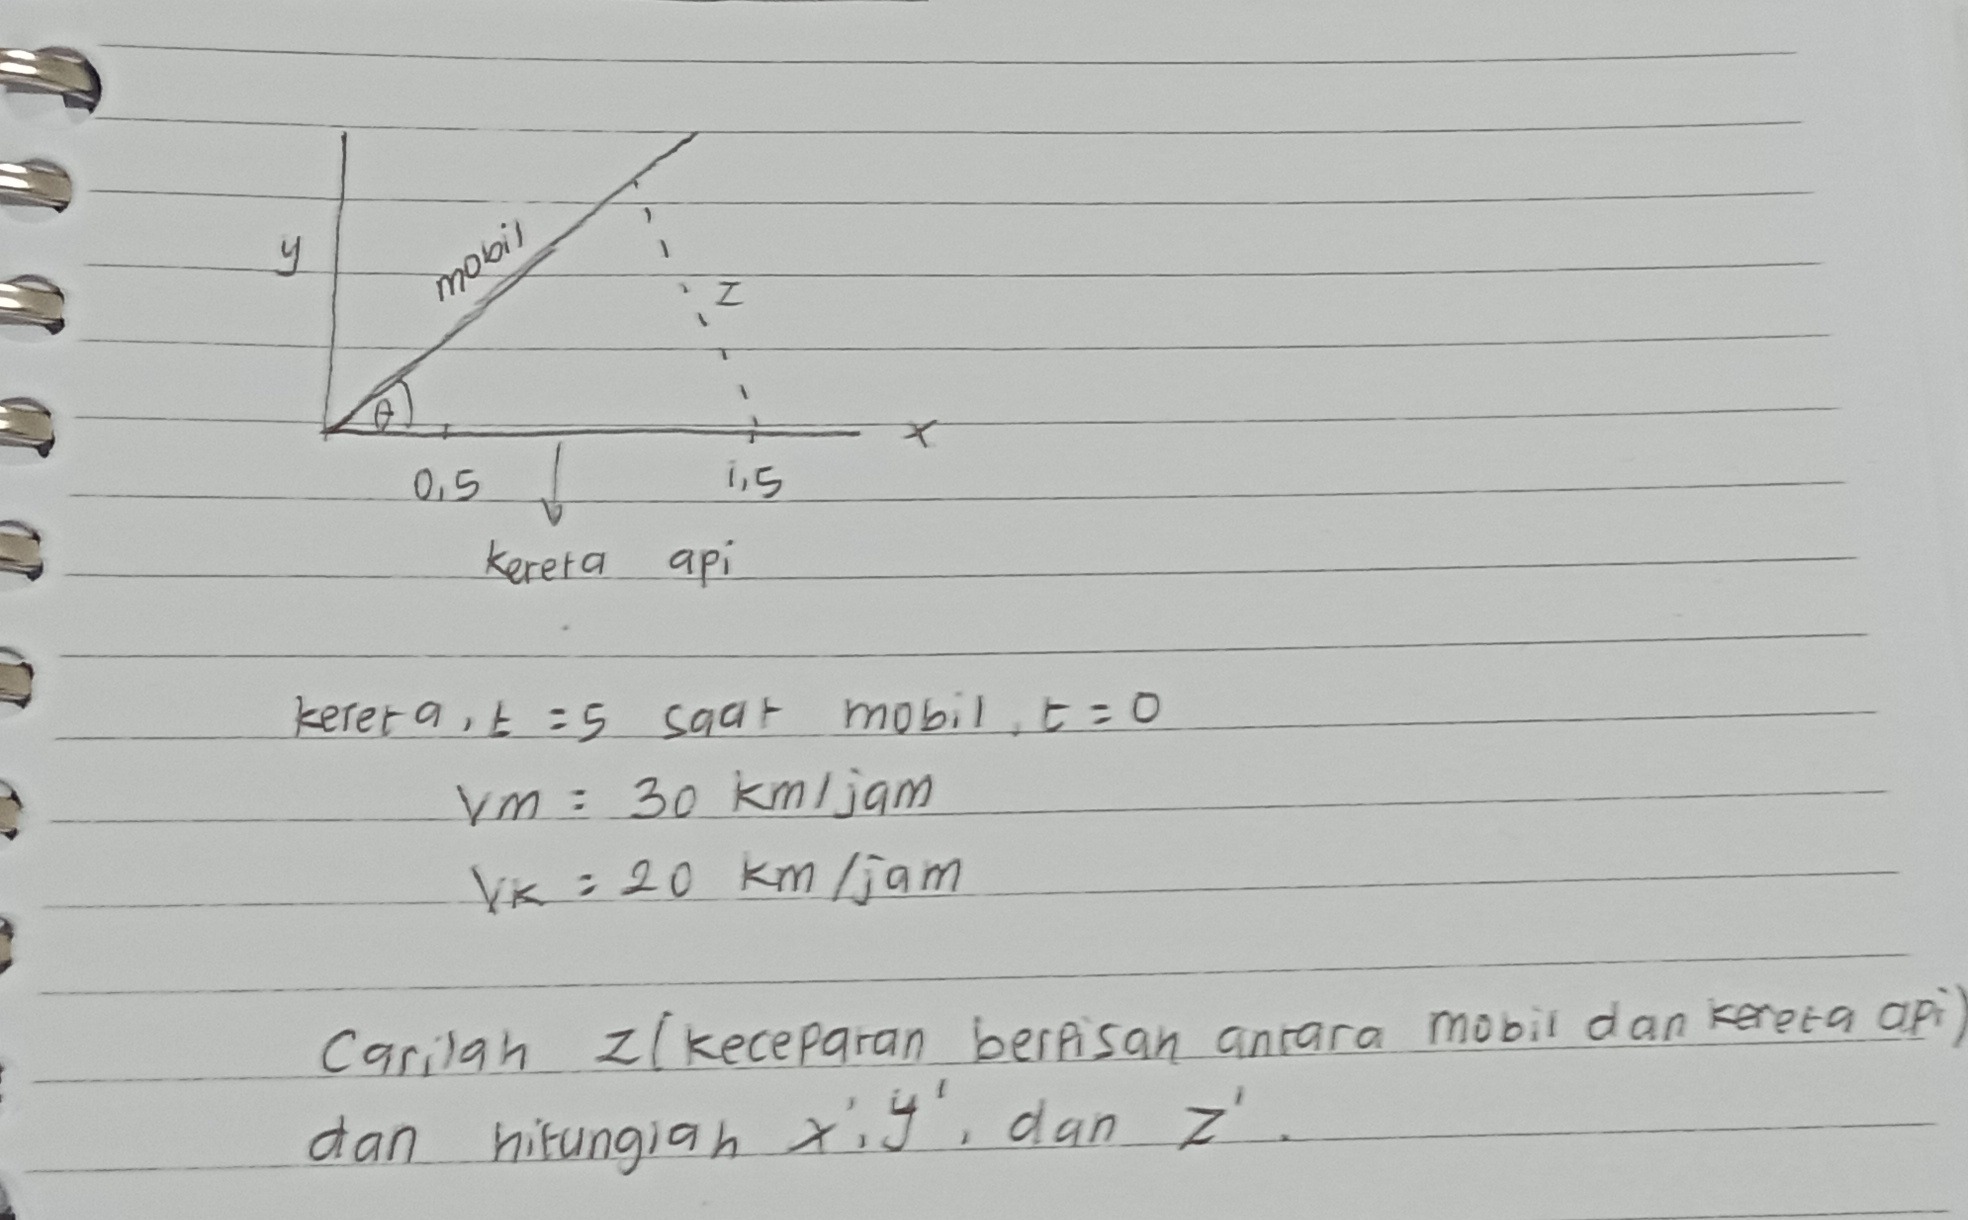 y
mobil
z
θ
x
0,5
1,5
kereta api
kereta, t = 5 saat mobil, t = 0
Vm = 30 km/jam
Vk = 20 km/jam
Carilah z (kecepatan berpisah antara mobil dan kereta api)
dan hitunglah x', y', dan z'.